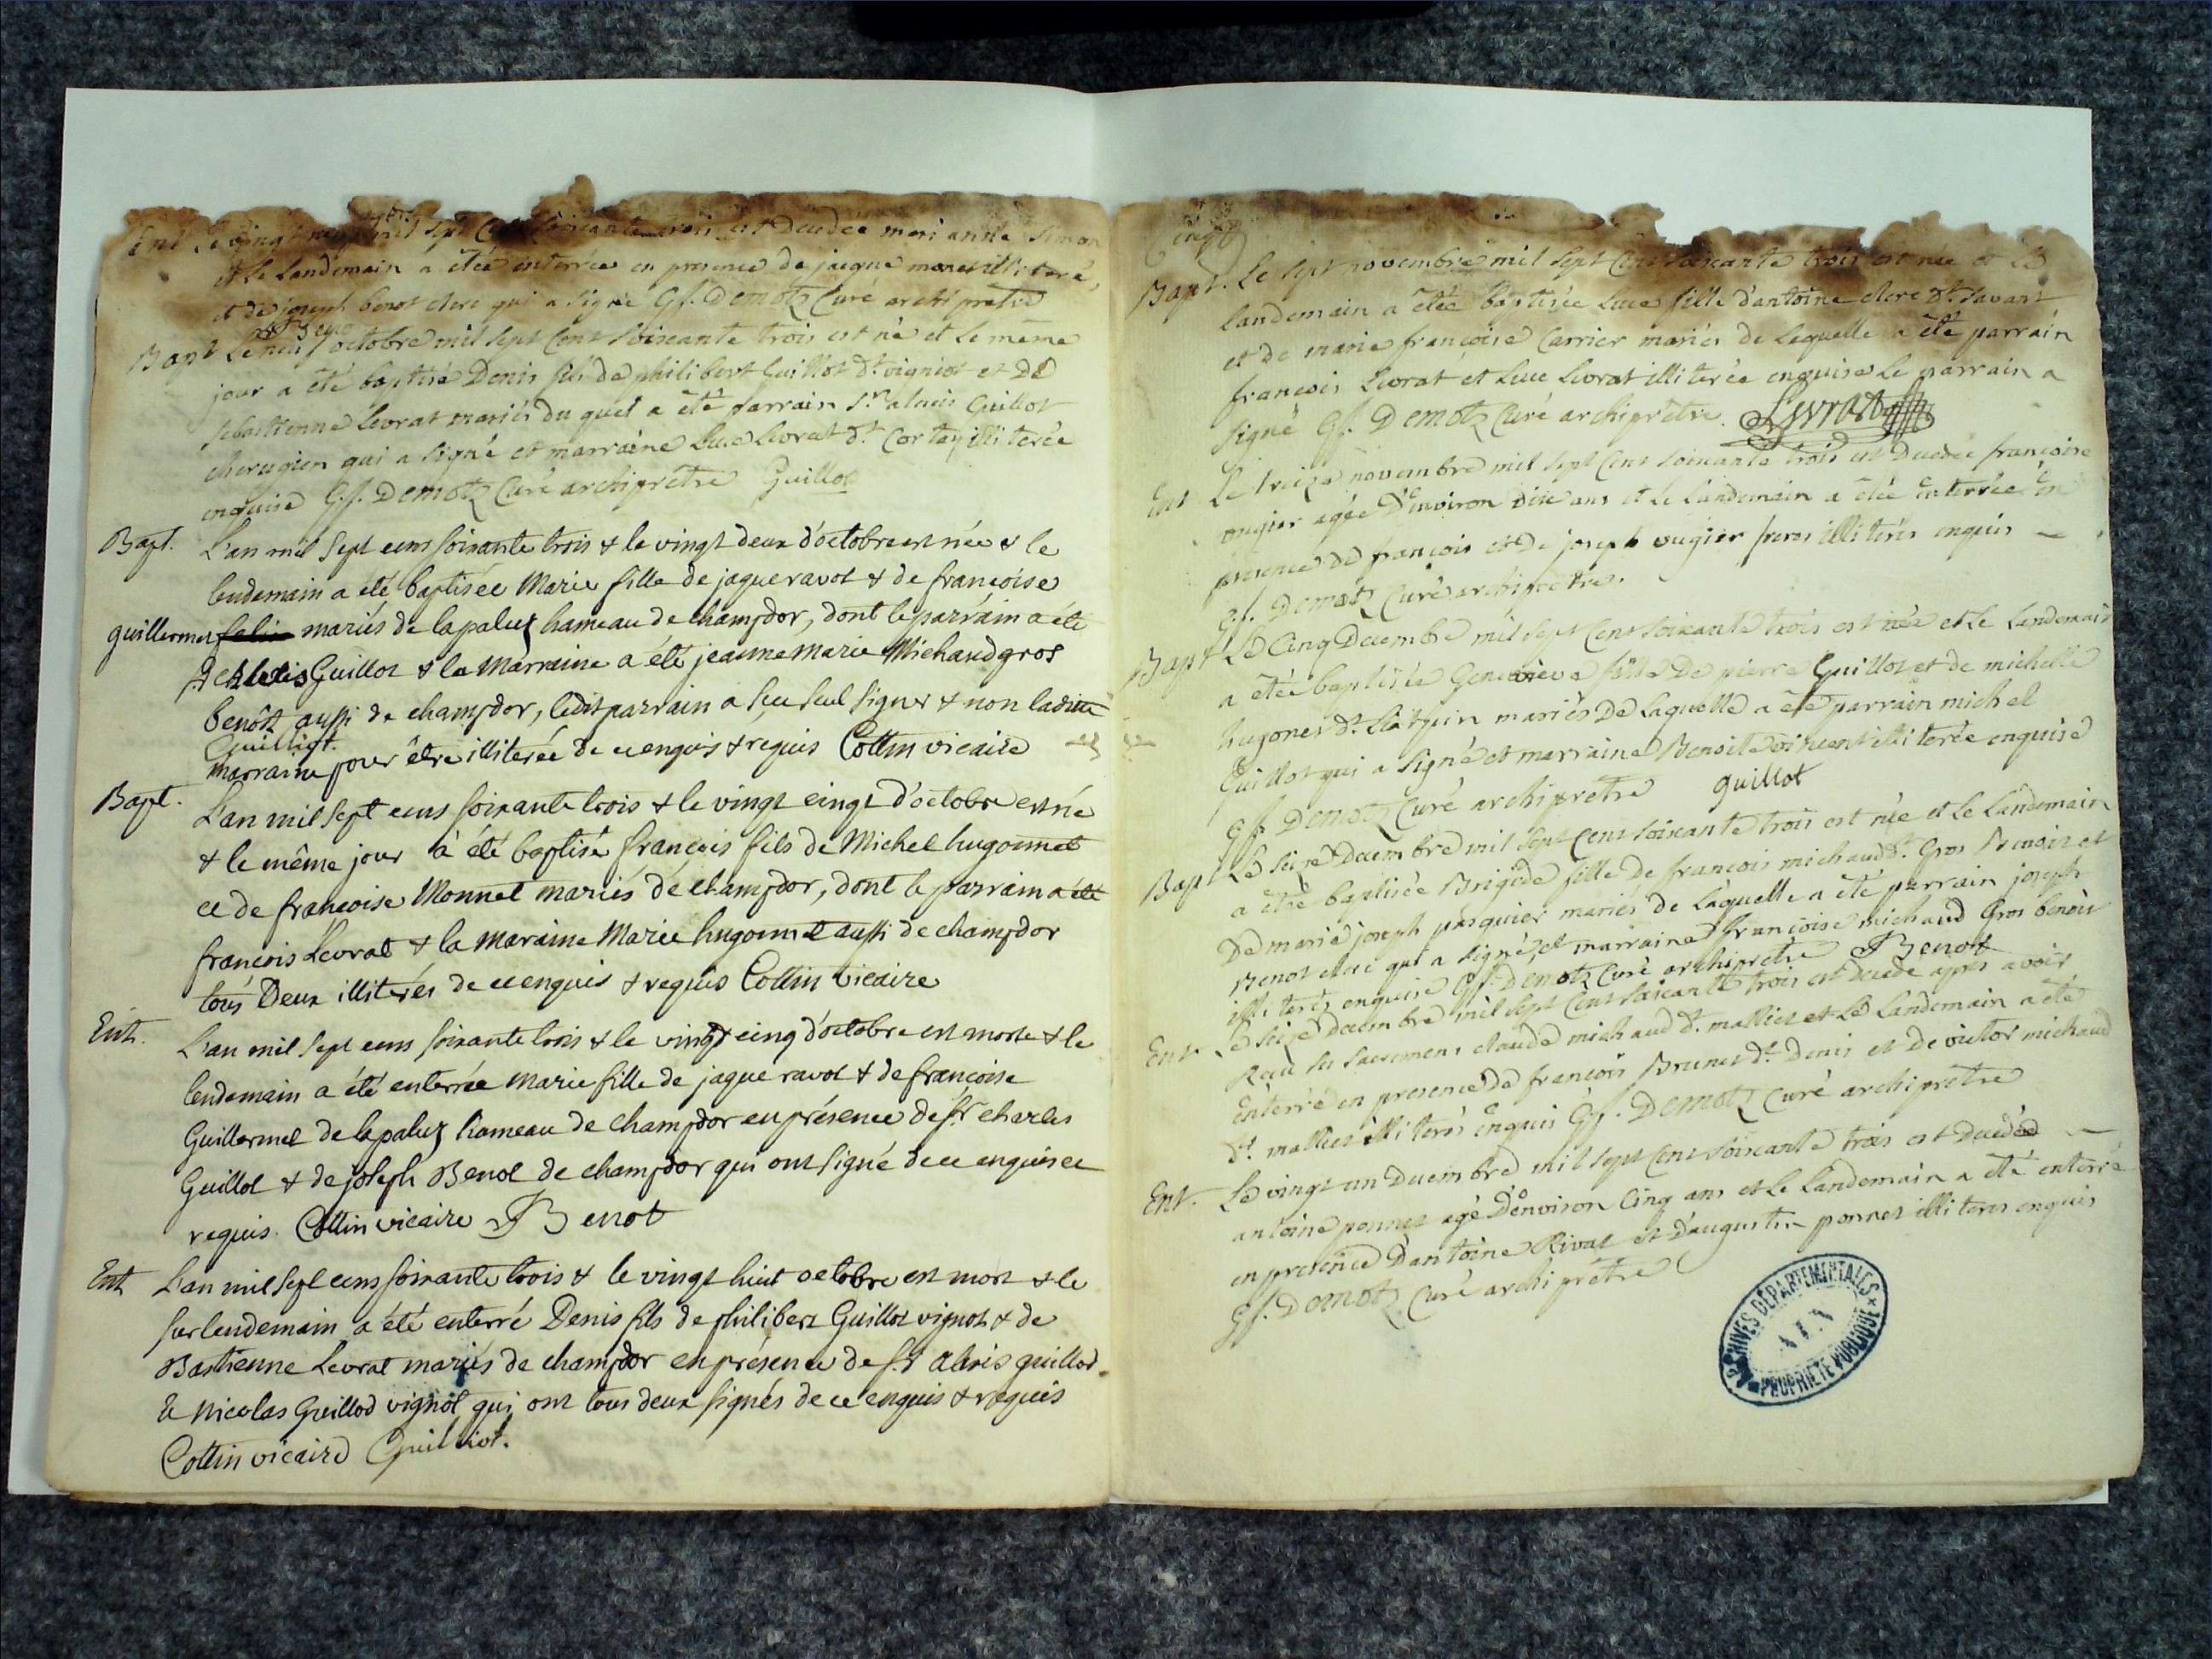 Ent Le vingt neuf mil sept Cent soixante trois est Decedee mari anne Simon
et Le Landemain a étée enterrée en presence de jacque monet illiteré,
et de joseph benot clerc qui a signé Gf. Demotz Curé archiprêtre
Bapt Le neuf octobre mil sept Cent soixante trois est né et Le même
jour a été baptisé Denis fils de philibert Guillot dt. vigniot et De
sebastienne Levrat mariés du quel a été parrain Sr. alexis Guillot
cherugien qui a signé et marraine Luce Levrat dt. Cortay illiterée
enquise G.f. Demotz Curé archiprêtre Guillot
Bapt. L'an mil sept cens soixante trois & le vingt deux d'octobre est née & le
lendemain a été baptisée Marie fille de jaque ravot & de francoise
guillermet felix mariés de lapaluz hameau de champdor, dont le parrain a été
Sr alexis Guillot & la Marraine a été jeanne Marie Michaud gros
benôit aussi de champdor, ledit parrain a sceu seul signer & non laditte
Guilliot.
marraine pour être illiterée de ce enquis & requis Collin vicaire
Bapt. L'an mil sept cens soixante trois & le vingt cinqt d'octobre est né
& le même jour à été baptisé francois fils de Michel hugonnet
et de francoise Monnet mariés de champdor, dont le parrain a été
francois Levrat & la Maraine Marie hugonnet aussi de champdor
tous Deux illiterés de ce enquis & requis Collin vicaire
Ent. L'an mil sept cens soixante trois & le vingt cinq d'octobre est morte & le
lendemain a été enterrée Marie fille de jaque ravot & de francoise
Guillermet de lapaluz hameau de champdor en présence de sr. charles
Guillot & de joseph Benot de champdor qui ont signé de ce enquis et
requis. Collin vicaire Benot
Ent L'an mil sept cens soixante trois & le vingt huit octobre est mort & le
surlendemain a été enterré Denis fils de philibert Guillot vignot & de
Bastienne Levrat mariés de champdor en présence de sr alexis guillod
& Nicolas Guillod vignot qui ont tous deux signés de ce enquis & requis
Collin vicaire Guilliot.
Cinqt
Bapt. Le sept novembre mil sept Cent soixante trois est née et Le
Landemain a étée baptisée Luce fille d'antoine clerc dt. Savart
et de marie françoise Carrier mariés de Lequelle a été parrain
françois Levrat et Luce Levrat illiterée enquise Le parrain a
signé Gf. Demotz Curé archiprêtre. Levrat
Ent Le treize novembre mil sept Cent soixante trois est Decedée françoise
ougier agée D'environ dix ans et Le Landemain a étée enterrée En
presence de francois et de joseph ougier freres illiterés enquis
Gf. Demotz Curé archiprêtre.
Bapt Le Cinq Decembre mil sept Cent soixante trois est née et Le Landemain
a étée baptisée Genevieve fille De pierre Guillot et de michelle
hugonet dt. mariés De Laquelle a été parrain michel
Guillot qui a signé et marraine Benoite vincent illiterée enquise
Gf. Demotz Curé archiprêtre guillot
Bapt Le seize Decembre mil sept Cent soixante trois est née et Le Landemain
a étée baptisée Brigide fille de francois michaud dt. Gros Benoit et
De marie joseph pasquier mariés de Laquelle a été parrain joseph
Benot clerc qui a signé, et marraine françoise michaud Gros benoit
illiterés enquise Gf. Demotz Curé archiprêtre Benot
Ent Le seize decembre mil sept Cent soixante trois est decede apres avoir
Receu ses sacremens claude michaud dt. malliet et Le Landemain a été
Enterré en presence de francois Brunet dt. Denis et De victor michaud
dt. malliet illiterés Enquis Gf. Demotz Curé archiprêtre
Ent. Le vingt un Decembre mil sept Cent soixante trois est decédé
antoine ponnet agé D'environ Cinq ans et Le Landemain a été enterré
en presence D'antoine Rivat et D'augustin ponnet illiterés enquis
Gf. Demotz Curé archiprêtre
ARCHIVES DÉPARTEMENTALES
AIN
PROPRIÉTÉ PUBLIQUE